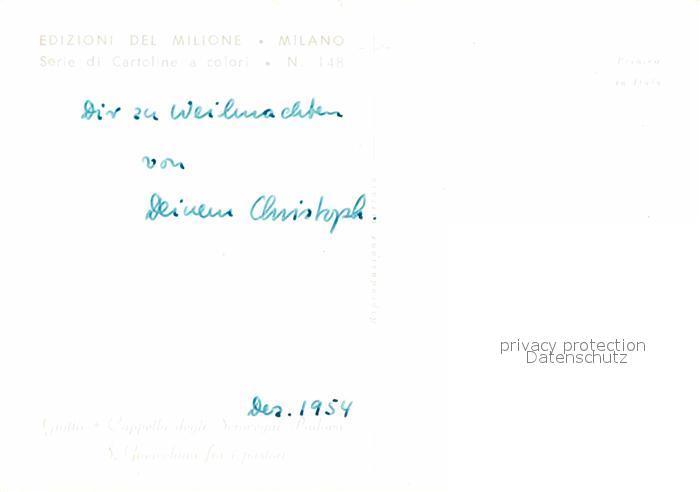 EDIZIONI DEL MILIONE • MILANO
Serie di Cartoline a colori • N. 148
Printed
in Italy
Dir zu Weihnachten
von
Deinem Christoph.
privacy protection
Datenschutz
Dez. 1954
Giotto • Cappella degli Scrovegni Padova
S. Gioacchino fra i pastori